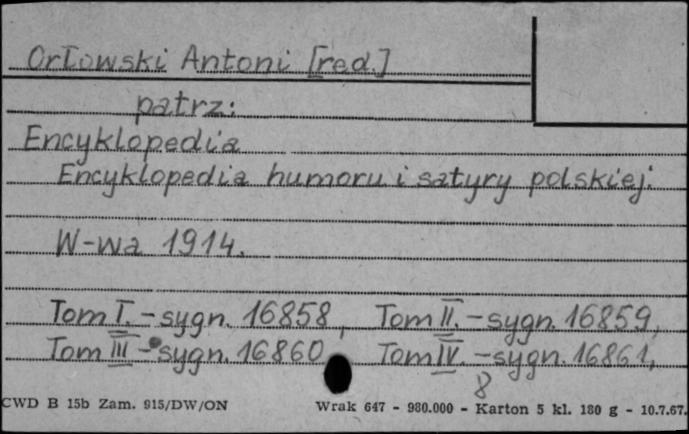 Orłowski Antoni [red.]
patrz:
Encyklopedia
Encyklopedia humoru i satyry polskiej.
W-wa 1914.
Tom I. - sygn. 16858, Tom II. - sygn. 16859,
Tom III - sygn. 16860 Tom IV. - sygn. 16861,
8
CWD B 15b Zam. 915/DW/ON Wrak 647 - 980.000 - Karton 5 kl. 180 g - 10.7.67.